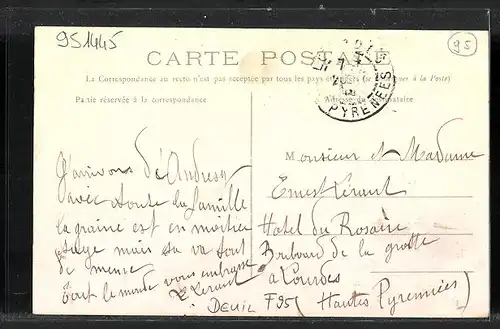 951445
95
CARTE POSTALE
La Correspondance au recto n'est pas acceptée par tous les pays étrangers (se à la Poste)
Partie réservée à la correspondance
Adresse du
PYRENEES
J'arrivons d'Andresy
avec toute la famille
la graine est en
mais sa va tout
de meme
tout le monde vous embrasse
Monsieur et Madame
Ernest
Hotel du Rosaire
Boulevard de la grotte
a Lourdes
(Hautes Pyrennées)
DEUIL F95